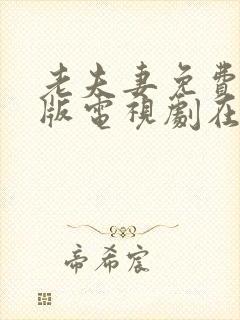 老夫妻免費
版電視劇在
帝希宸